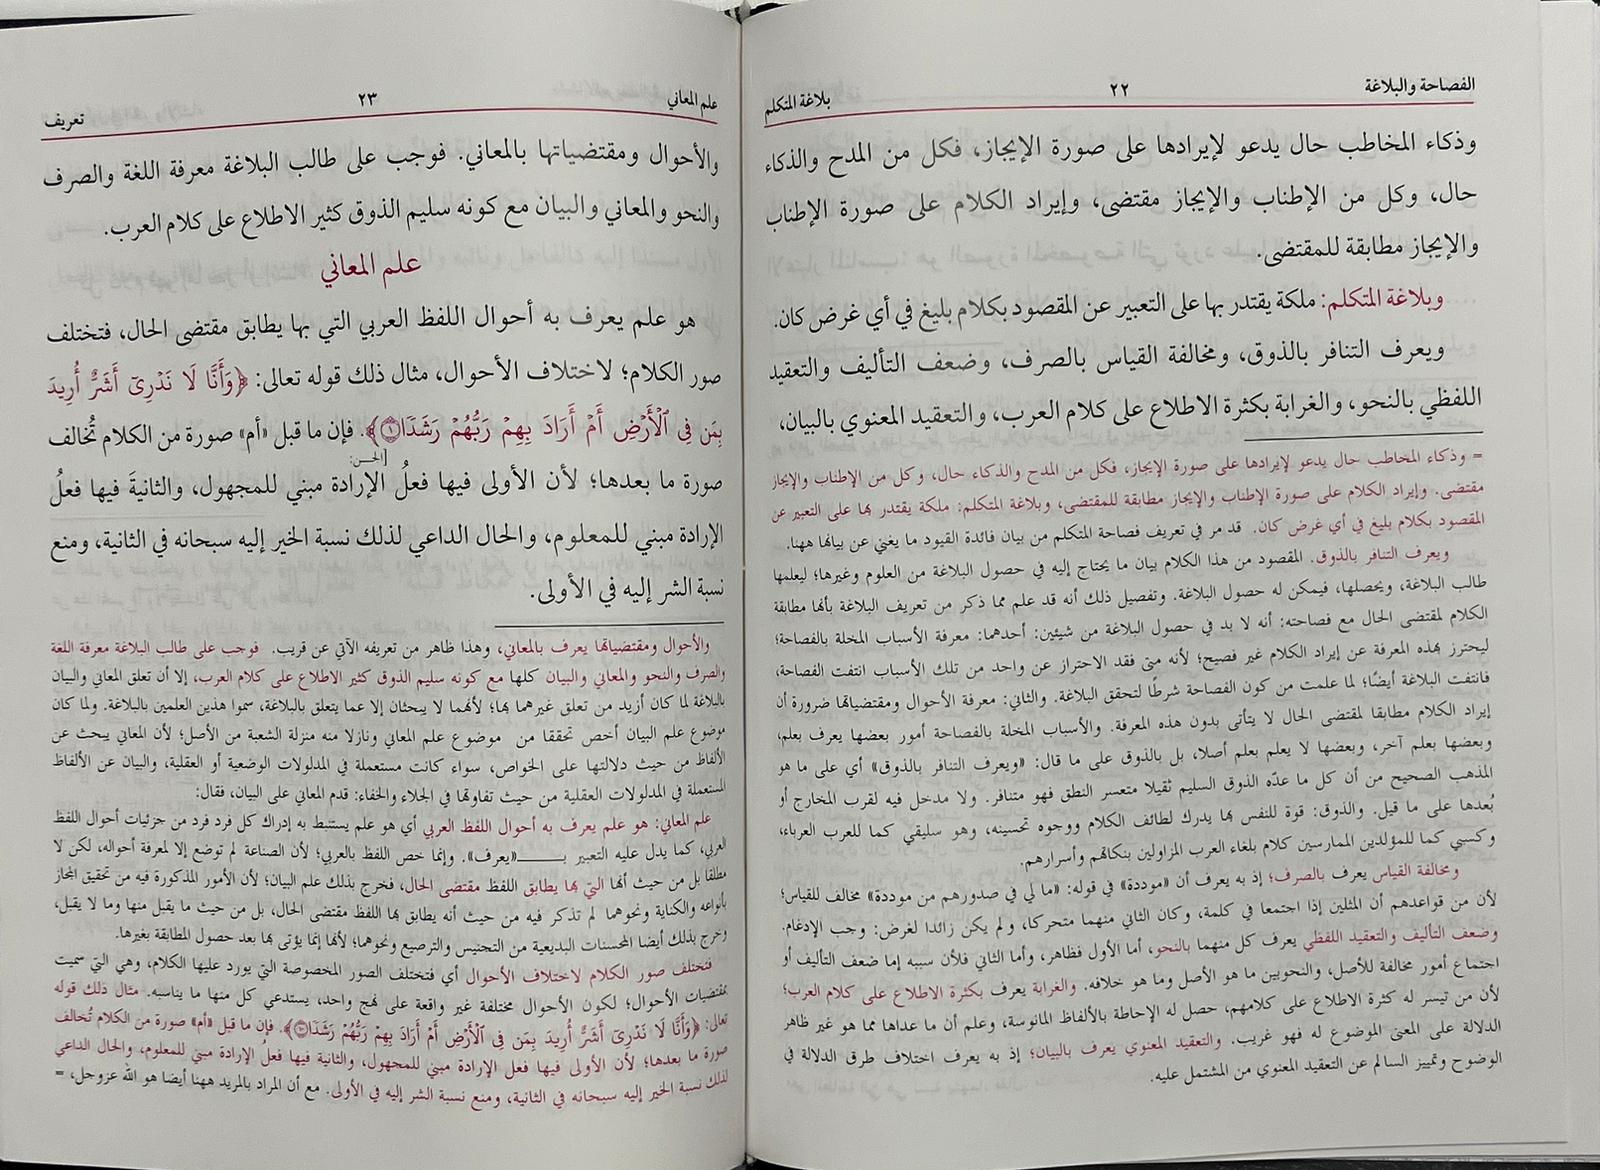 الفصاحة والبلاغة ٢٢ بلاغة المتكلم
وذكاء المخاطب حال يدعو لإيرادها على صورة الإيجاز، فكل من المدح والذكاء
حال، وكل من الإطناب والإيجاز مقتضى، وإيراد الكلام على صورة الإطناب
والإيجاز مطابقة للمقتضى.
وبلاغة المتكلم: ملكة يقتدر بها على التعبير عن المقصود بكلام بليغ في أي غرض كان.
ويعرف التنافر بالذوق، ومخالفة القياس بالصرف، وضعف التأليف والتعقيد
اللفظي بالنحو، والغرابة بكثرة الاطلاع على كلام العرب، والتعقيد المعنوي بالبيان،
= وذكاء المخاطب حال يدعو لإيرادها على صورة الإيجاز، فكل من المدح والذكاء حال، وكل من الإطناب والإيجاز
مقتضى. وإيراد الكلام على صورة الإطناب والإيجاز مطابقة للمقتضى، وبلاغة المتكلم: ملكة يقتدر بها على التعبير عن
المقصود بكلام بليغ في أي غرض كان. قد مر في تعريف فصاحة المتكلم من بيان فائدة القيود ما يغني عن بيانها ههنا.
ويعرف التنافر بالذوق. المقصود من هذا الكلام بيان ما يحتاج إليه في حصول البلاغة من العلوم وغيرها؛ ليعلمها
طالب البلاغة، ويحصلها، فيمكن له حصول البلاغة. وتفصيل ذلك أنه قد علم مما ذكر من تعريف البلاغة بأنها مطابقة
الكلام لمقتضى الحال مع فصاحته: أنه لا بد في حصول البلاغة من شيئين: أحدهما: معرفة الأسباب المخلة بالفصاحة؛
ليحترز بهذه المعرفة عن إيراد الكلام غير فصيح؛ لأنه متى فقد الاحتراز عن واحد من تلك الأسباب انتفت الفصاحة،
فانتفت البلاغة أيضًا؛ لما علمت من كون الفصاحة شرطًا لتحقق البلاغة. والثاني: معرفة الأحوال ومقتضياتها ضرورة أن
إيراد الكلام مطابقا لمقتضى الحال لا يتأتى بدون هذه المعرفة. والأسباب المخلة بالفصاحة أمور بعضها يعرف بعلم،
وبعضها بعلم آخر، وبعضها لا يعلم بعلم أصلا، بل بالذوق على ما قال: «ويعرف التنافر بالذوق» أي على ما هو
المذهب الصحيح من أن كل ما عدّه الذوق السليم ثقيلا متعسر النطق فهو متنافر. ولا مدخل فيه لقرب المخارج أو
بُعدها على ما قيل. والذوق: قوة للنفس بها يدرك لطائف الكلام ووجوه تحسينه، وهو سليقي كما للعرب العرباء،
وكسبي كما للمؤلدين الممارسين كلام بلغاء العرب المزاولين بنكاتهم وأسرارهم.
ومخالفة القياس يعرف بالصرف؛ إذ به يعرف أن «موددة» في قوله: «ما لي في صدورهم من موددة» مخالف للقياس؛
لأن من قواعدهم أن المثلين إذا اجتمعا في كلمة، وكان الثاني منهما متحركا، ولم يكن زائدا لغرض: وجب الإدغام.
وضعف التأليف والتعقيد اللفظي يعرف كل منهما بالنحو، أما الأول فظاهر، وأما الثاني فلأن سببه إما ضعف التأليف أو
اجتماع أمور مخالفة للأصل، والنحويين ما هو الأصل وما هو خلافه. والغرابة يعرف بكثرة الاطلاع على كلام العرب؛
لأن من تيسر له كثرة الاطلاع على كلامهم، حصل له الإحاطة بالألفاظ المانوسة، وعلم أن ما عداها مما هو غير ظاهر
الدلالة على المعنى الموضوع له فهو غريب. والتعقيد المعنوي يعرف بالبيان؛ إذ به يعرف اختلاف طرق الدلالة في
الوضوح وتمييز السالم عن التعقيد المعنوي من المشتمل عليه.
علم المعاني ٢٣ تعريف
والأحوال ومقتضياتها بالمعاني. فوجب على طالب البلاغة معرفة اللغة والصرف
والنحو والمعاني والبيان مع كونه سليم الذوق كثير الاطلاع على كلام العرب.
علم المعاني
هو علم يعرف به أحوال اللفظ العربي التي بها يطابق مقتضى الحال، فتختلف
صور الكلام؛ لاختلاف الأحوال، مثال ذلك قوله تعالى: ﴿وَأَنَّا لَا نَدْرِىٓ أَشَرٌّ أُرِيدَ
بِمَن فِى ٱلْأَرْضِ أَمْ أَرَادَ بِهِمْ رَبُّهُمْ رَشَدًا ۝١٠﴾. فإن ما قبل «أم» صورة من الكلام تُخالف
[الجن:
صورة ما بعدها؛ لأن الأولى فيها فعلُ الإرادة مبني للمجهول، والثانيةَ فيها فعلُ
الإرادة مبني للمعلوم، والحال الداعي لذلك نسبة الخير إليه سبحانه في الثانية، ومنع
نسبة الشر إليه في الأولى.
والأحوال ومقتضياتها يعرف بالمعاني، وهذا ظاهر من تعريفه الآتي عن قريب. فوجب على طالب البلاغة معرفة اللغة
والصرف والنحو والمعاني والبيان كلها مع كونه سليم الذوق كثير الاطلاع على كلام العرب، إلا أن تعلق المعاني والبيان
بالبلاغة لما كان أزيد من تعلق غيرهما بها؛ لأنهما لا يبحثان إلا عما يتعلق بالبلاغة، سموا هذين العلمين بالبلاغة. ولما كان
موضوع علم البيان أخص تحققا من موضوع علم المعاني ونازلا منه منزلة الشعبة من الأصل؛ لأن المعاني يبحث عن
الألفاظ من حيث دلالتها على الخواص، سواء كانت مستعملة في المدلولات الوضعية أو العقلية، والبيان عن الألفاظ
المستعملة في المدلولات العقلية من حيث تفاوتها في الجلاء والخفاء: قدم المعاني على البيان، فقال:
علم المعاني: هو علم يعرف به أحوال اللفظ العربي أي هو علم يستنبط به إدراك كل فرد فرد من جزئيات أحوال اللفظ
العربي، كما يدل عليه التعبير بـ«يعرف». وإنما خص اللفظ بالعربي؛ لأن الصناعة لم توضع إلا لمعرفة أحواله، لكن لا
مطلقا بل من حيث أنها التي بها يطابق اللفظ مقتضى الحال، فخرج بذلك علم البيان؛ لأن الأمور المذكورة فيه من تحقيق المجاز
بأنواعه والكناية ونحوهما لم تذكر فيه من حيث أنه يطابق بها اللفظ مقتضى الحال، بل من حيث ما يقبل منها وما لا يقبل،
وخرج بذلك أيضا المحسنات البديعية من التجنيس والترصيع ونحوهما؛ لأنها إنما يؤتى بها بعد حصول المطابقة بغيرها.
فتختلف صور الكلام لاختلاف الأحوال أي فتختلف الصور المخصوصة التي يورد عليها الكلام، وهي التي سميت
بمقتضيات الأحوال؛ لكون الأحوال مختلفة غير واقعة على نهج واحد، يستدعي كل منها ما يناسبه. مثال ذلك قوله
تعالى: ﴿وَأَنَّا لَا نَدْرِىٓ أَشَرٌّ أُرِيدَ بِمَن فِى ٱلْأَرْضِ أَمْ أَرَادَ بِهِمْ رَبُّهُمْ رَشَدًا ۝١٠﴾. فإن ما قبل «أم» صورة من الكلام تُخالف
صورة ما بعدها؛ لأن الأولى فيها فعل الإرادة مبني للمجهول، والثانية فيها فعلُ الإرادة مبني للمعلوم، والحال الداعي
لذلك نسبة الخير إليه سبحانه في الثانية، ومنع نسبة الشر إليه في الأولى. مع أن المراد بالمريد ههنا أيضا هو الله عزوجل، =